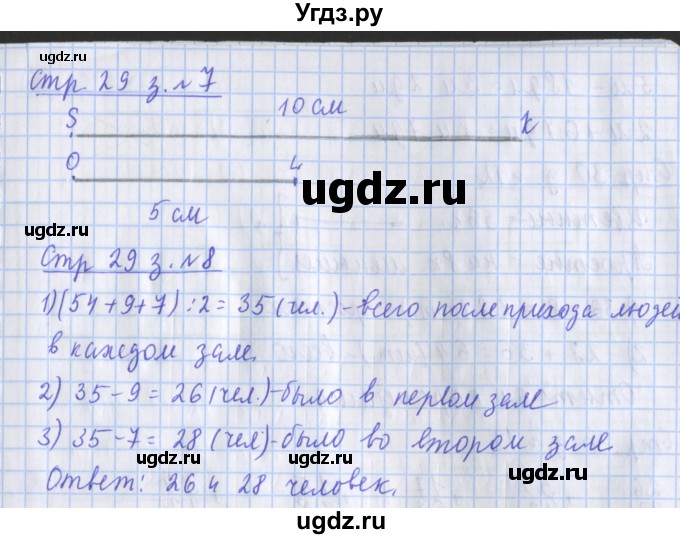 Угдз.ру
ugdz.ru
ugdz.ru
Стр 29 з. №7
10 см
S
K
O
4
ugdz.ru
5 см
ugdz.ru
Стр 29 з. №8
1) (54+9+7) :2 = 35 (чел.) - всего после прихода людей
в каждом зале.
2) 35-9 = 26 (чел.)-было в первом зале
3) 35-7 = 28 (чел)-было во втором зале
ugdz.ru
ugdz.ru
Ответ: 26 и 28 человек.
ugdz.ru